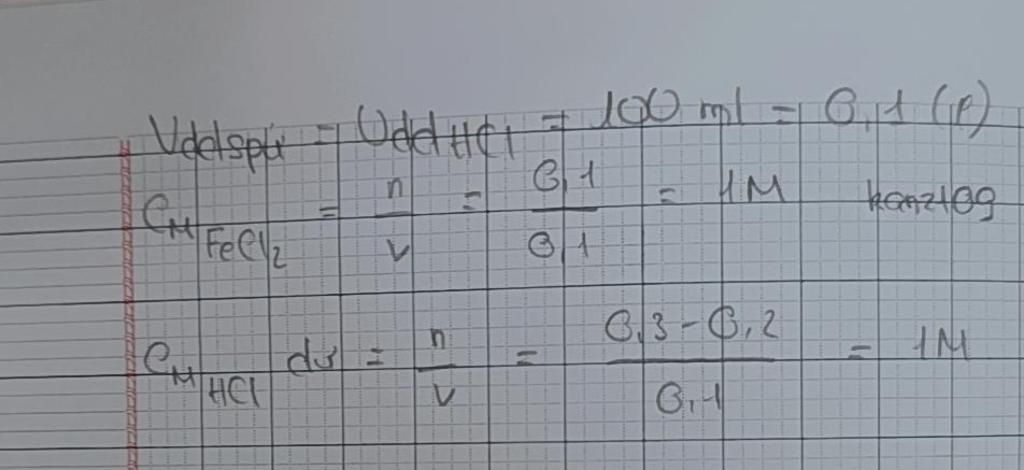 Vddspứ = Vdd HCl = 100 ml = 0,1 (l)
CM FeCl2 = n/V = 0,1/0,1 = 1M hanz109
CM HCl dư = n/V = 0,3 - 0,2/0,1 = 1M